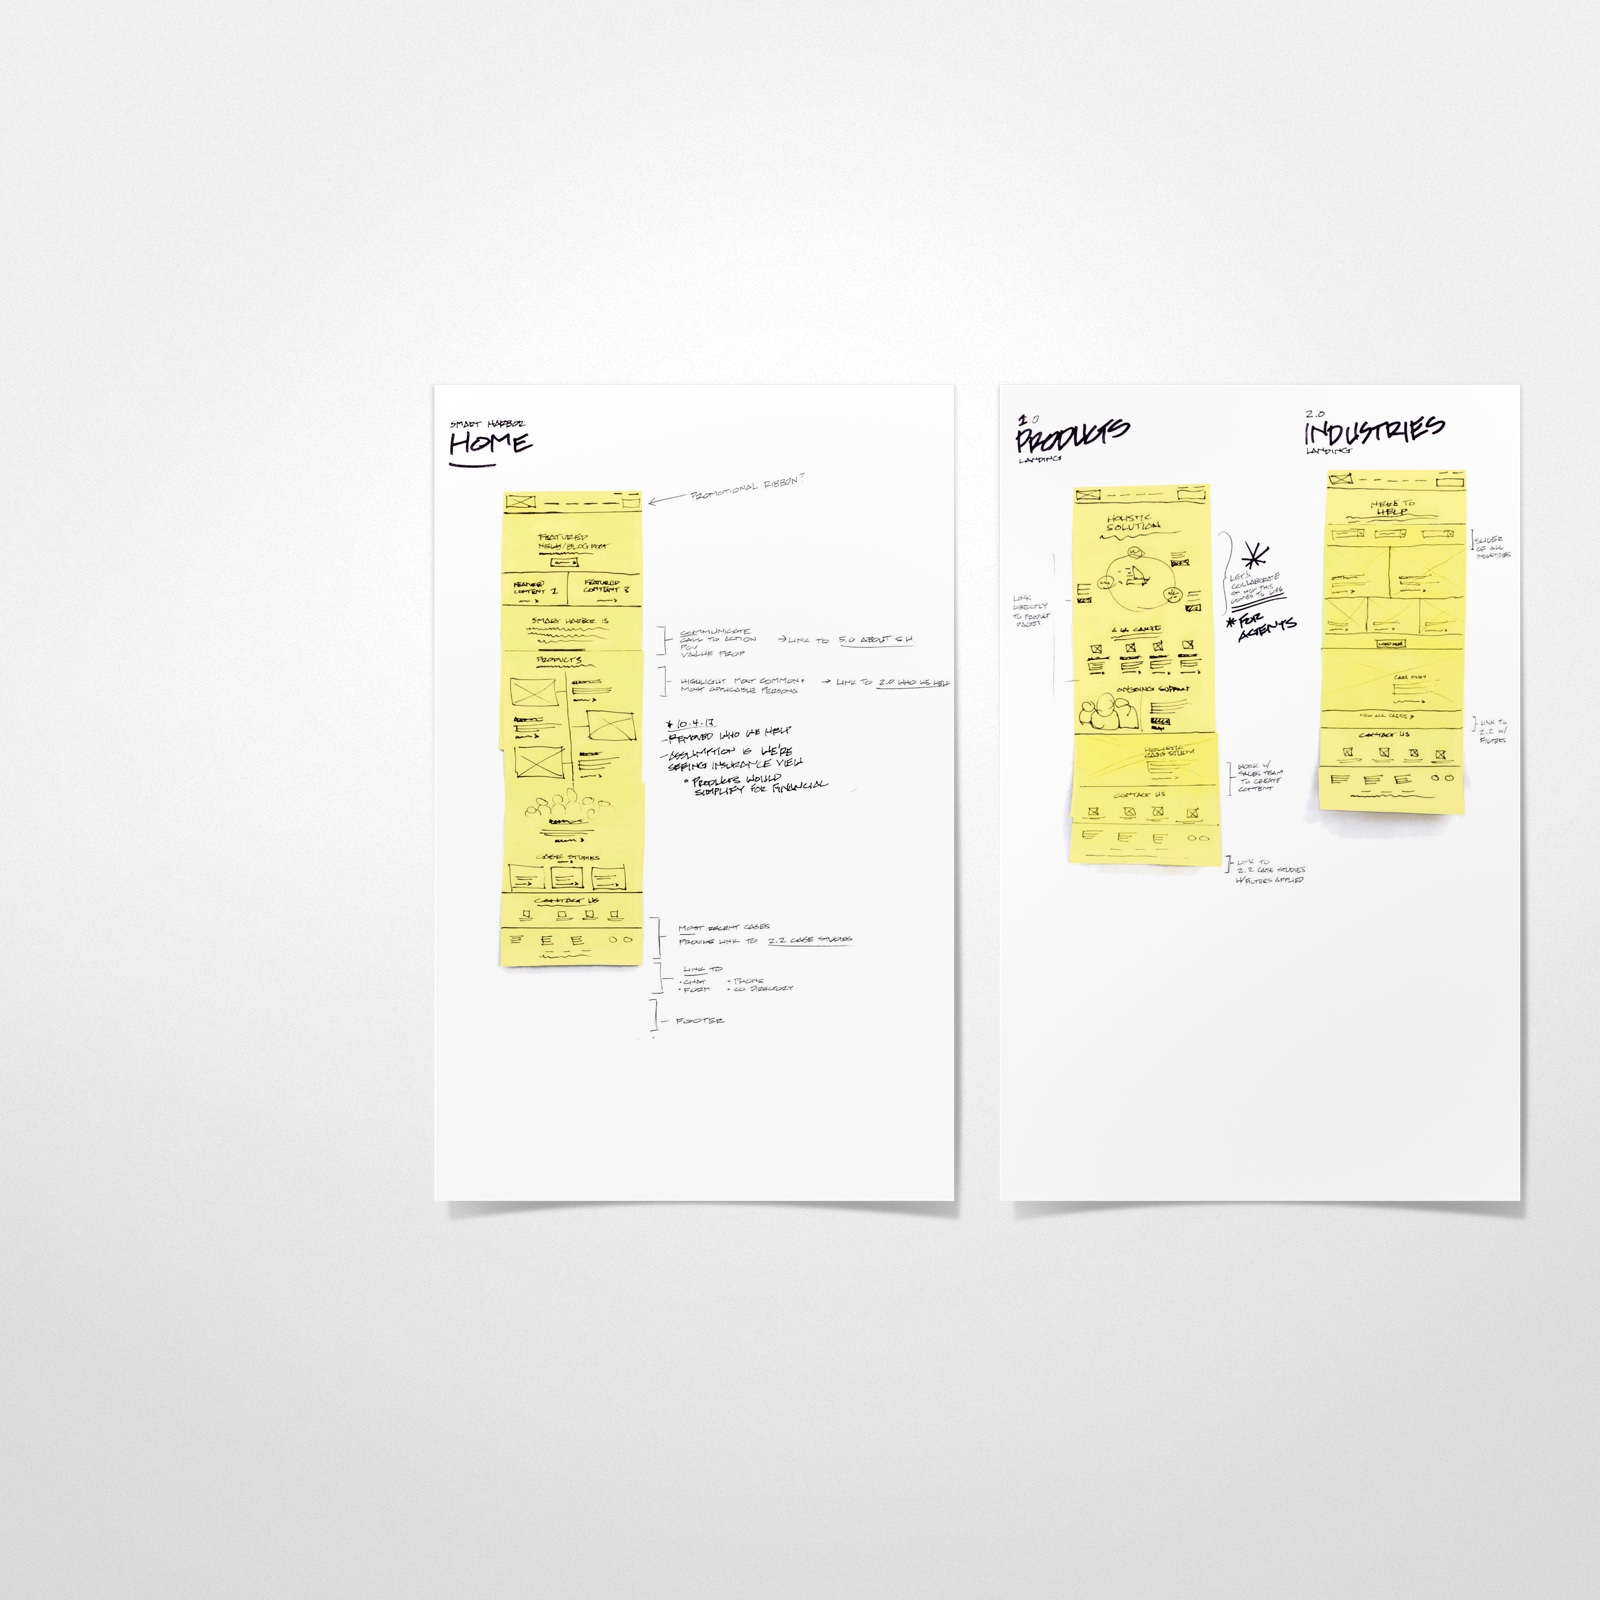 SMART HARBOR
HOME
PROMOTIONAL RIBBON?
FEATURED
NEWS/BLOG POST
FEATURED
CONTENT 2
FEATURED
CONTENT 3
SMART HARBOR IS
COMMUNICATE
CALL TO ACTION
POV
VALUE PROP
→ LINK TO 5.0 ABOUT SH
PRODUCTS
HIGHLIGHT MOST COMMON +
MOST APPLICABLE PERSONA
→ LINK TO 2.0 WHO WE HELP
* 10.4.17
- REMOVED WHO WE HELP
- ASSUMPTION IS WE'RE
SEEING INSURANCE VIEW
• PRODUCTS WOULD
SIMPLIFY FOR FINANCIAL
CASE STUDIES
CONTACT US
MOST RECENT CASES
PROVIDE LINK TO 2.2 CASE STUDIES
LINK TO
• CHAT • PHONE
• FORM • CO. DIRECTORY
FOOTER
1.0
PRODUCTS
LANDING
HOLISTIC
SOLUTION
LINK
DIRECTLY
TO PRODUCT
PAGES
LET'S
COLLABORATE
ON HOW THIS
COMES TO LIFE
* FOR
AGENTS
ONGOING SUPPORT
HOLISTIC
CASE STUDY
WORK W/
SALES TEAM
TO CREATE
CONTENT
CONTACT US
LINK TO
2.2 CASE STUDIES
W/ FILTERS APPLIED
2.0
INDUSTRIES
LANDING
HERE TO
HELP
SLIDER
OF ALL
INDUSTRIES
LOAD MORE
CASE STUDY
VIEW ALL CASES >
LINK TO
2.2 W/
FILTERS
CONTACT US